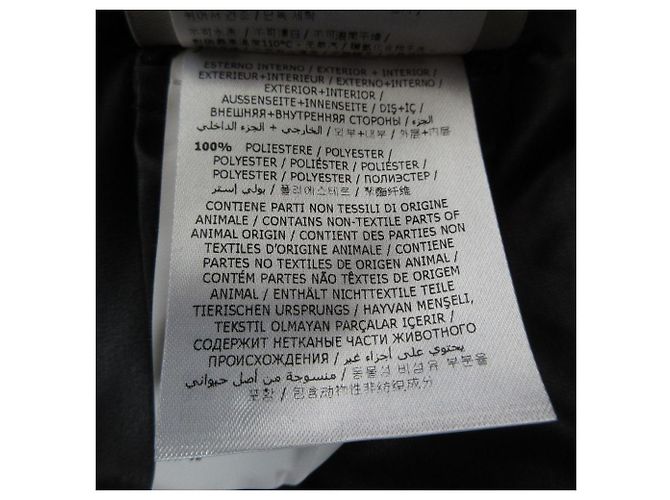 뒤어서 건조 / 단독 세탁
不可水洗 / 不可漂白 / 不可滚筒干燥 /
ESTERNO INTERNO / EXTERIOR + INTERIOR /
EXTERIEUR+INTERIEUR / EXTERNO+INTERNO /
EXTERIOR+INTERIOR /
AUSSENSEITE+INNENSEITE / DIŞ+İÇ /
ВНЕШНЯЯ+ВНУТРЕННЯЯ СТОРОНЫ / الجزء
الخارجي + الجزء الداخلي / 외부+내부 / 外层+内层
100% POLIESTERE / POLYESTER /
POLYESTER / POLIÉSTER / POLIÉSTER /
POLYESTER / POLYESTER / ПОЛИЭСТЕР /
بولي إستر / 폴리에스테르 / 聚酯纤维
CONTIENE PARTI NON TESSILI DI ORIGINE
ANIMALE / CONTAINS NON-TEXTILE PARTS OF
ANIMAL ORIGIN / CONTIENT DES PARTIES NON
TEXTILES D'ORIGINE ANIMALE / CONTIENE
PARTES NO TEXTILES DE ORIGEN ANIMAL /
CONTÉM PARTES NÃO TÊXTEIS DE ORIGEM
ANIMAL / ENTHÄLT NICHTTEXTILE TEILE
TIERISCHEN URSPRUNGS / HAYVAN MENŞELİ,
TEKSTIL OLMAYAN PARÇALAR IÇERIR /
СОДЕРЖИТ НЕТКАНЫЕ ЧАСТИ ЖИВОТНОГО
ПРОИСХОЖДЕНИЯ / يحتوي على أجزاء غير
منسوجة من أصل حيواني / 동물성 비섬유 부분을
포함 / 包含动物性非纺织成分